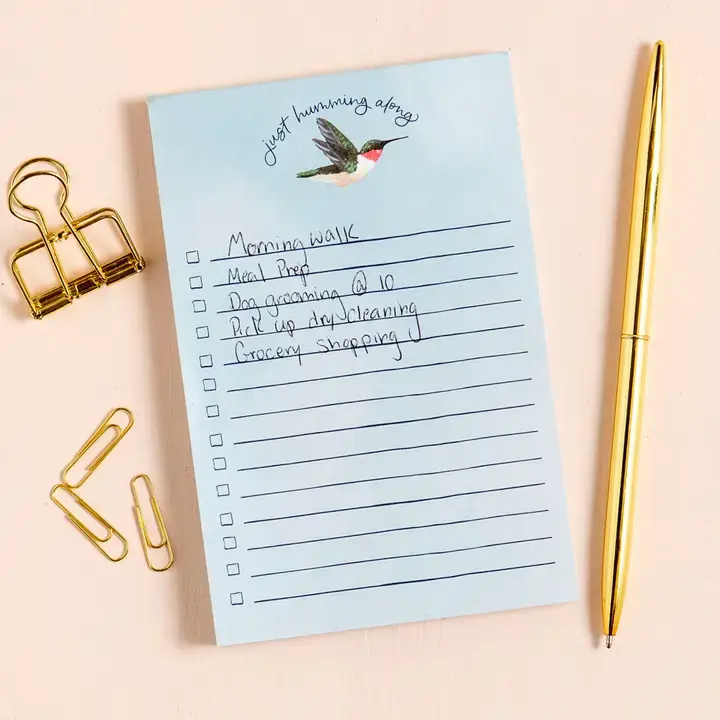 just humming along
Morning walk
Meal Prep
Dog grooming @ 10
Pick up dry cleaning
Grocery shopping